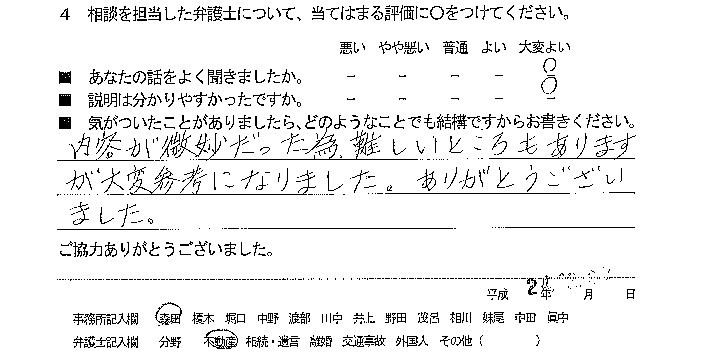 4 相談を担当した弁護士について、当てはまる評価に○をつけてください。
悪い やや悪い 普通 よい 大変よい
■ あなたの話をよく聞きましたか。 - - - - ○
■ 説明は分かりやすかったですか。 - - - - ○
■ 気がついたことがありましたら、どのようなことでも結構ですからお書きください。
内容が微妙だった為、難しいところもあります
が大変参考になりました。ありがとうござい
ました。
ご協力ありがとうございました。
平成 2 年 月 日
事務所記入欄 森田 榎木 堀口 中野 渡部 川中 井上 野田 茂呂 相川 妹尾 中田 眞中
弁護士記入欄 分野 不動産 相続・遺言 離婚 交通事故 外国人 その他( )